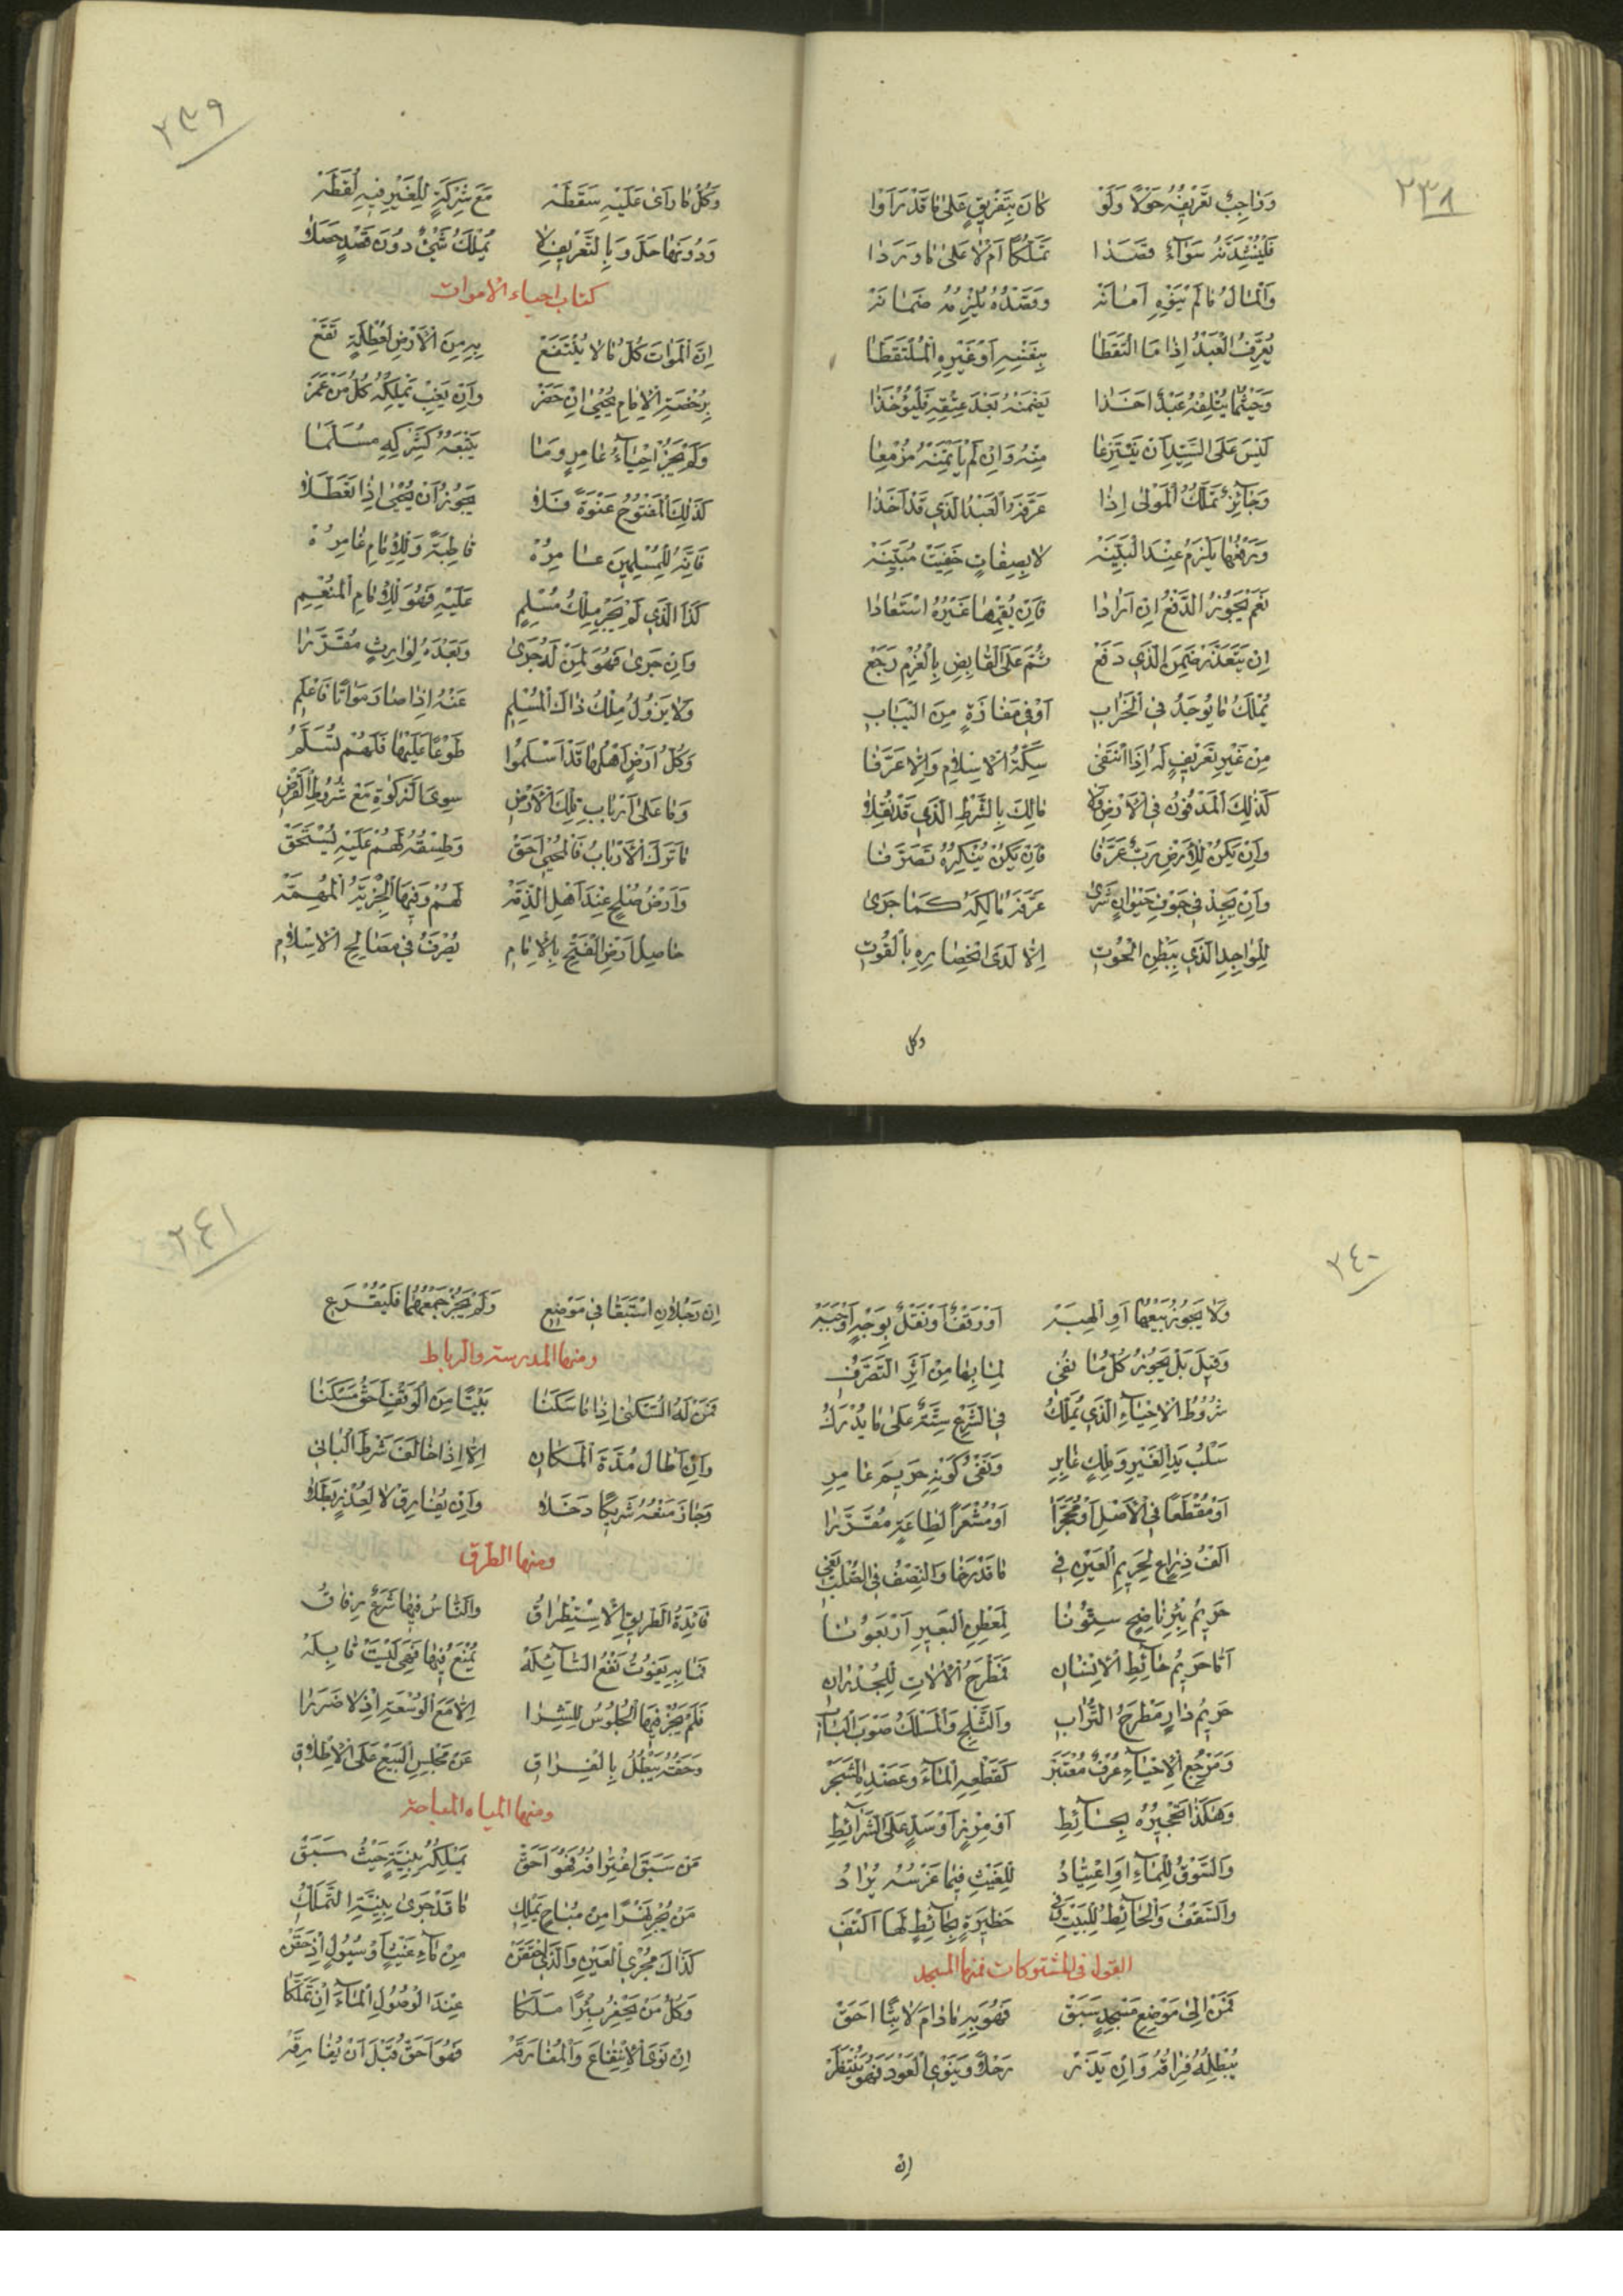 ٢٣٨
وَوَاجِبٌ تَعْرِيفُهُ حَوْلًا وَلَوْ كَانَ بِتَفْرِيقٍ عَلَىٰ مَا قَدْ رَأَوْا
فَلْيُنْشِدَنَّهُ سَوَاءً قَصَدَا تَمَلُّكًا أَمْ لَا عَلَىٰ مَا وَرَدَا
وَالْمَالُ مَا لَمْ يَنْوِهِ أَمَانَهْ وَقَصْدُهُ يُلْزِمُهُ ضَمَانَهْ
يُعَرِّفُ الْعَبْدُ إِذَا مَا الْتَقَطَا بِنَفْسِهِ أَوْ غَيْرِهِ الْمُلْتَقَطَا
وَحَيْثُمَا يُتْلِفُهُ عَبْدٌ أَخَذَا يَضْمَنُهُ بَعْدَ عِتْقِهِ فَلْيُؤْخَذَا
لَيْسَ عَلَى السَّيِّدِ أَنْ يَنْتَزِعَا مِنْهُ وَإِنْ لَمْ يَأْتَمِنْهُ مُزْمِعَا
وَجَائِزٌ تَمَلُّكُ الْمَوْلَىٰ إِذَا عَرَّفَهُ الْعَبْدُ الَّذِي قَدْ أَخَذَا
وَدَفْعُهَا يَلْزَمُ عِنْدَ الْبَيِّنَهْ لَا بِصِفَاتٍ خَفِيَتْ مُبَيِّنَهْ
نَعَمْ يَجُوزُ الدَّفْعُ إِنْ أَرَادَا فَإِنْ يُقِمْهَا غَيْرُهُ اسْتَعَادَا
إِنْ يَتَعَذَّرْ ضَمِنَ الَّذِي دَفَعْ ثُمَّ عَلَى الْقَابِضِ بِالْغُرْمِ رَجَعْ
يُمْلَكُ مَا يُوجَدُ فِي الْخَرَابِ أَوْ فِي مَفَازَةٍ مِنَ الْيَبَابِ
مِنْ غَيْرِ تَعْرِيفٍ لَهُ إِذَا انْتَفَىٰ سِكَّةُ الْإِسْلَامِ وَإِلَّا عَرَّفَا
كَذَلِكَ الْمَدْفُونُ فِي الْأَرْضِ وَلَا مَالِكَ بِالشَّرْطِ الَّذِي قَدْ نُقِلَا
وَإِنْ يَكُنْ لِلْأَرْضِ رَبٌّ عَرَّفَا فَإِنْ يَكُنْ يُنْكِرُهُ تَصَرَّفَا
وَإِنْ يَجِدْ فِي جَوْفِ حَيْوَانٍ شَرَىٰ عَرَّفَهُ مَالِكَهُ كَمَا جَرَىٰ
لِلْوَاجِدِ الَّذِي بِبَطْنِ الْحُوتِ إِلَّا لَدَى انْحِصَارِهِ بِالْقُوتِ
وكل
٢٣٩
وَكُلُّ مَا رَأَىٰ عَلَيْهِ سَقَطَهْ مَعَ شِرْكَةٍ لِلْغَيْرِ فِيهِ لُقَطَهْ
وَدُونَهَا حَلَّ وَبِالتَّعْرِيفِ لَا يُمْلَكُ شَيْءٌ دُونَ قَصْدٍ حَصَلَا
كتاب احياء الاموات
إِنَّ الْمَوَاتَ كُلُّ مَا لَا يُنْتَفَعْ بِهِ مِنَ الْأَرْضِ لِعُطْلَةٍ تَقَعْ
بِرُخْصَةِ الْإِمَامِ يُحْيَىٰ إِنْ حَضَرْ وَإِنْ يَغِبْ يَمْلِكُهُ كُلُّ مَنْ عَمَرْ
وَلَمْ يَجُزْ إِحْيَاءُ عَامِرٍ وَمَا يَتْبَعُهُ كَشِرْكِهِ مُسَلَّمَا
كَذَلِكَ الْمَفْتُوحُ عَنْوَةً فَلَا يَجُوزُ أَنْ يُحْيَىٰ إِذَا تَعَطَّلَا
فَإِنَّهُ لِلْمُسْلِمِينَ عَامِرُهْ قَاطِبَةً وَلِلْإِمَامِ غَامِرُهْ
كَذَا الَّذِي لَمْ يَجْرِ مِلْكُ مُسْلِمِ عَلَيْهِ فَهُوَ لِلْإِمَامِ الْمُنْعِمِ
وَإِنْ جَرَىٰ فَهُوَ لِمَنْ لَهُ جَرَىٰ وَبَعْدَهُ لِوَارِثٍ مُقَرَّرَا
وَلَا يَزُولُ مِلْكُ ذَاكَ الْمُسْلِمِ عَنْهُ إِذَا صَارَ مَوَاتًا فَاعْلَمِ
وَكُلُّ أَرْضٍ أَهْلُهَا قَدْ أَسْلَمُوا طَوْعًا عَلَيْهَا فَلَهُمْ تُسَلَّمُ
وَمَا عَلَىٰ أَرْبَابِ تِلْكَ الْأَرْضِ سِوَى الزَّكَوةِ مَعْ شُرُوطِ الْفَرْضِ
مَا تَرَكَ الْأَرْبَابُ فَالْمُحْيِي أَحَقْ وَطَسْقُهُ لَهُمْ عَلَيْهِ يُسْتَحَقْ
وَأَرْضُ صُلْحٍ عِنْدَ أَهْلِ الذِّمَّهْ لَهُمْ وَفِيهَا الْجِزْيَةُ الْمُهِمَّهْ
حَاصِلُ أَرْضِ الْفَتْحِ بِالْإِمَامِ يُصْرَفُ فِي مَصَالِحِ الْإِسْلَامِ
٢٤٠
وَلَا يَجُوزُ بَيْعُهَا أَوِ الْهِبَهْ أَوْ وَقْفٌ أَوْ نَقْلٌ بِوَجْهٍ أَوْجَبَهْ
وَقِيلَ بَلْ يَجُوزُ كُلُّ مَا نُفِي لِمَا بِهَا مِنْ أَثَرِ التَّصَرُّفِ
شُرُوطُ الْإِحْيَاءِ الَّذِي يُمَلِّكُ فِي الشَّرْعِ سِتَّةٌ عَلَىٰ مَا يُدْرَكُ
سَلْبُ يَدِ الْغَيْرِ وَمِلْكٍ غَابِرِ وَنَفْيُ كَوْنِهِ حَرِيمَ عَامِرِ
أَوْ مُقْطَعًا فِي الْأَصْلِ أَوْ مُحَجَّرَا أَوْ مَشْعَرًا لِطَاعَةٍ مُقَرَّرَا
أَلْفُ ذِرَاعٍ لِحَرِيمِ الْعَيْنِ فِي مَا قَدْ رَخَا وَالنِّصْفُ فِي الصُّلْبِ يَفِي
حَرِيمُ بِئْرِ نَاضِحٍ سِتُّونَا لِمَعْطِنِ الْبَعِيرِ أَرْبَعُونَا
أَمَّا حَرِيمُ حَائِطِ الْإِنْسَانِ فَمَطْرَحُ الْآلَاتِ لِلْجُدْرَانِ
حَرِيمُ دَارٍ مَطْرَحُ التُّرَابِ وَالثَّلْجِ وَالْمَسْلَكُ صَوْبَ الْبَابِ
وَمَرْجِعُ الْإِحْيَاءِ عُرْفٌ مُعْتَبَرْ كَقَطْعِهِ الْمَاءَ وَعَضْدِ الشَّجَرْ
وَهَكَذَا تَحْجِيرُهُ بِحَائِطِ أَوْ مِرْزٍ أَوْ سَدٍّ عَلَى الشَّرَائِطِ
وَالسَّوْقُ لِلْمَاءِ أَوِ اعْتِيَادُ لِلْغَيْثِ فِيمَا غَرْسُهُ يُرَادُ
وَالسَّقْفُ وَالْحَائِطُ لِلْبَيْتِ وَفِي حَظِيرَةٍ بِحَائِطٍ لَهَا اكْتُفِ
القول فى المشتركات فمنها المسجد
فَمَنْ إِلَىٰ مَوْضِعِ مَسْجِدٍ سَبَقْ فَهُوَ بِهِ مَا دَامَ لَابِثًا أَحَقْ
يُبْطِلُهُ فِرَاقُهُ وَإِنْ يَذَرْ رَحْلًا وَيَنْوِي الْعَوْدَ فَهُوَ يُنْتَظَرْ
ان
٢٤١
إِنْ رَجُلَانِ اسْتَبَقَا فِي مَوْضِعِ وَلَمْ يَجُزْ جَمْعُهُمَا فَلْيُقْرَعِ
ومنها المدرسة والرباط
فَمَنْ لَهُ السُّكْنَىٰ إِذَا مَا سَكَنَا بَيْتًا مِنَ الْوَقْفِ أَحَقُّ مَسْكَنَا
وَإِنْ أَطَالَ مُدَّةَ الْمَكَانِ إِلَّا إِذَا خَالَفَ شَرْطَ الْبَانِي
وَجَازَ مَنْعُهُ شَرِيكًا دَخَلَا وَإِنْ يُفَارِقْ لَا لِعُذْرٍ بَطَلَا
ومنها الطرق
فَائِدَةُ الطَّرِيقِ الْاِسْتِطْرَاقُ وَالنَّاسُ فِيهَا شَرَعٌ رِفَاقُ
فَمَا بِهِ يَفُوتُ نَفْعُ السَّابِلَهْ يُمْنَعُ فِيهَا فَهْيَ لَيْسَتْ قَابِلَهْ
فَلَمْ يَجُزْ فِيهَا الْجُلُوسُ لِلشِّرَا إِلَّا مَعَ الْوُسْعَةِ إِذْ لَا ضَرَرَا
وَحَقُّهُ يَبْطُلُ بِالْفِرَاقِ عَنْ مَجْلِسِ الْبَيْعِ عَلَى الْإِطْلَاقِ
ومنها المياه المباحة
مَنْ سَبَقَ اغْتِرَافُهُ فَهُوَ أَحَقْ يَمْلِكُهُ بِنِيَّةٍ حَيْثُ سَبَقْ
مَنْ يُجْرِ نَهْرًا مِنْ مُبَاحٍ يَمْلِكِ مَا قَدْ جَرَىٰ بِنِيَّةِ التَّمَلُّكِ
كَذَاكَ مُجْرِي الْعَيْنِ وَالَّذِي احْتَقَنْ مِنْ مَاءِ غَيْثٍ أَوْ سُيُولٍ إِذْ حَقَنْ
وَكُلُّ مَنْ يَحْفِرُ بِئْرًا مَلَكَا عِنْدَ الْوُصُولِ الْمَاءَ إِنْ تَمَلَّكَا
إِنْ نَوَى الْاِنْتِفَاعَ وَالْمُفَارَقَهْ فَهُوَ أَحَقُّ قَبْلَ أَنْ يُفَارِقَهْ